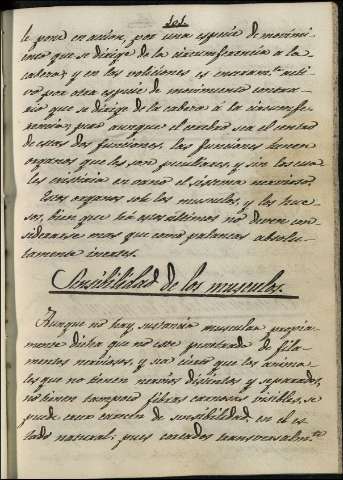 101
le pone en accion, por una especie de movimi-
ento que se dirige de la circunferencia a la
cabeza; y en las voliciones es enteram.te acti-
vo por otra especie de movimiento contra-
rio que se dirige de la cabeza à la circunfe-
rencia; pues aunque el cerebro sea el centro
de estas dos funciones, las funciones tienen
organos que les son peculiares, y sin los cua-
les existiria en vano el sistema nervioso.
Estos organos son los musculos, y los hue-
sos, bien que los ultimos no deven con-
siderarse mas que como palancas absolu-
tamente inertes.
Sensibilidad de los musculos.
Aunque no hay sustancia muscular propia-
mente dicha que no este penetrada de fila-
mentos nerviosos, y sea cierto que los anima-
les que no tienen nervios distintos y separados,
no tienen tampoco fibras carnosas visibles, se
puede creer carecen de sensibilidad en el es-
tado natural; pues cortados transversalm.te